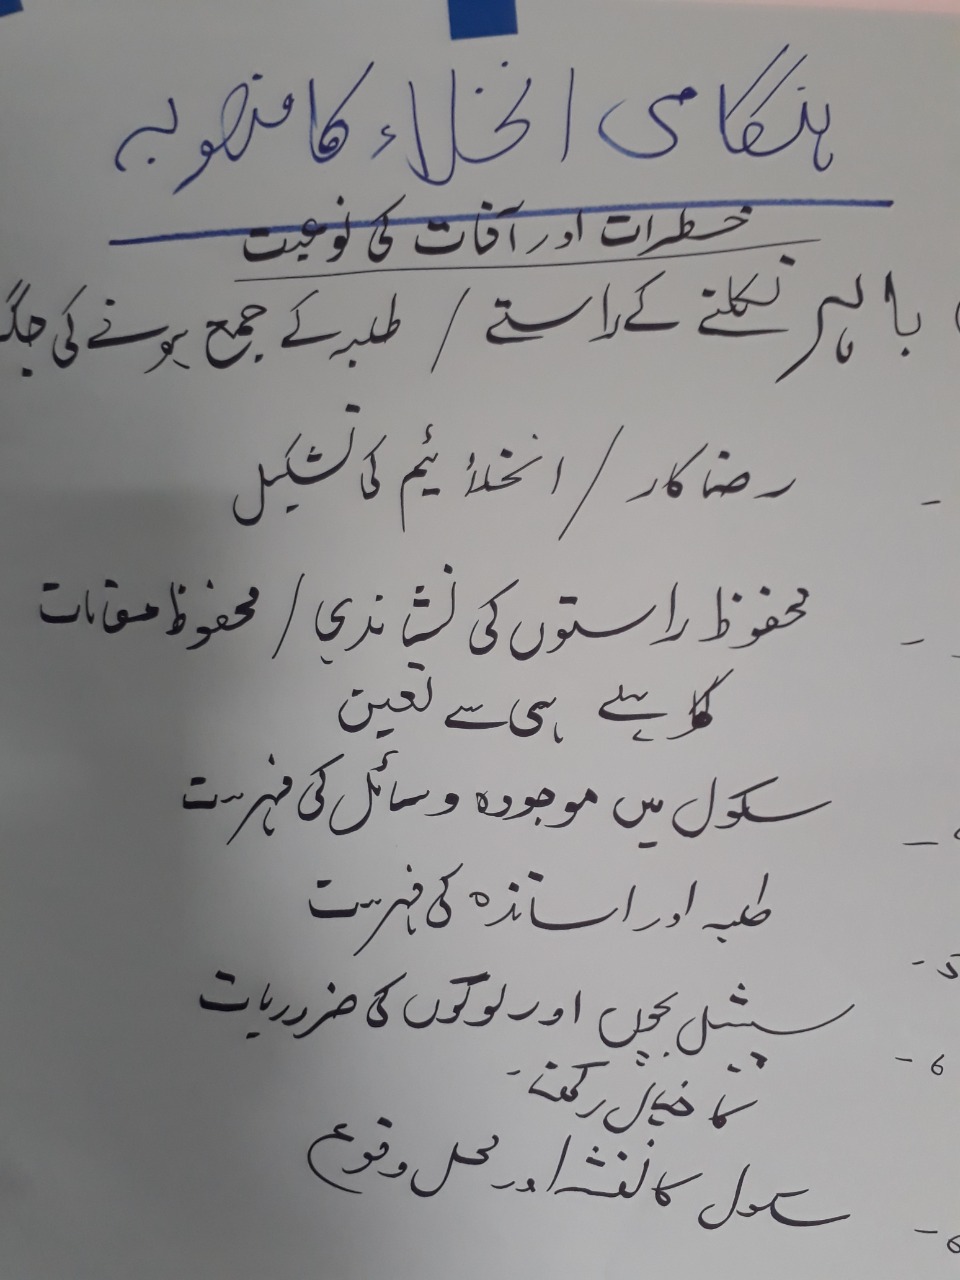 ہنگامی انخلاء کا منصوبہ
خطرات اور آفات کی نوعیت
باہر نکلنے کے راستے / طلبہ کے جمع ہونے کی جگہ
- رضا کار / انخلأ ٹیم کی تشکیل
- محفوظ راستوں کی نشاندہی / محفوظ مقامات
کا پہلے ہی سے تعین
- سکول میں موجودہ وسائل کی فہرست
5- طلبہ اور اساتذہ کی فہرست
6- سپیشل بچوں اور لوگوں کی ضروریات
کا خیال رکھنے -
6- سکول کا نقشہ اور محل وقوع